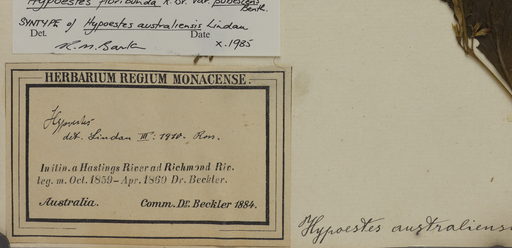 Hypoestes floribunda R. Br. var. pubescens
Benth.
SYNTYPE of Hypoestes australiensis Lindau
Det. Date
R.M. Barker x.1985
HERBARIUM REGIUM MONACENSE.
Hypoestes
det. Lindau III. 1910. Ross.
In itin. a Hastings River ad Richmond Riv.
leg. m. Oct. 1859-Apr. 1860 Dr. Beckler.
Australia. Comm. Dr. Beckler 1884.
Hypoestes australiensi